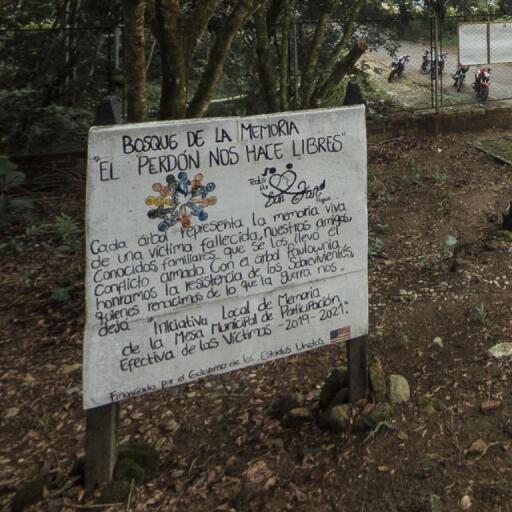 BOSQUE DE LA MEMORIA
"EL PERDÓN NOS HACE LIBRES"
Todos Por
San José
Cada árbol representa la memoria viva
de una víctima fallecida, nuestros amigos,
Conocidos familiares que se los llevó el
Conflicto armado. Con el árbol Paulownia
honramos la resistencia de los Sobrevivientes,
quienes renacimos de lo que la guerra nos
deja. "Iniciativa Local de Memoria
de la Mesa Municipal de Participación
Efectiva de las Víctimas -2019-2021."
Financiado por el Gobierno de los Estados Unidos